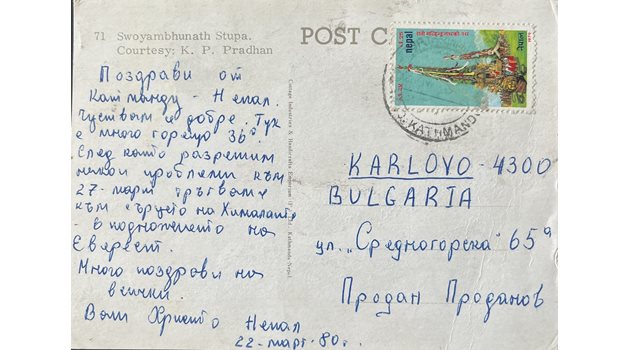 71 Swoyambhunath Stupa.
Courtesy; K. P. Pradhan
POST
nepal
नेपाल
KATHMAND
Cottage Industries & Handicrafts Emporium
Kathmandu-Nepal.
Поздрави от
Катманду - Непал.
Чуствам се добре. Тук
е много горещо 36°.
След като разрешим
някои проблеми към
27-март тръгваме
към сърцето на Хималаите
- в подножието на
Еверест.
Много поздрави на
всички.
Ваш Христо Непал
22-март-80г.
KARLOVO - 4300
BULGARIA
ул. „Средногорска" 65а
Продан Проданов